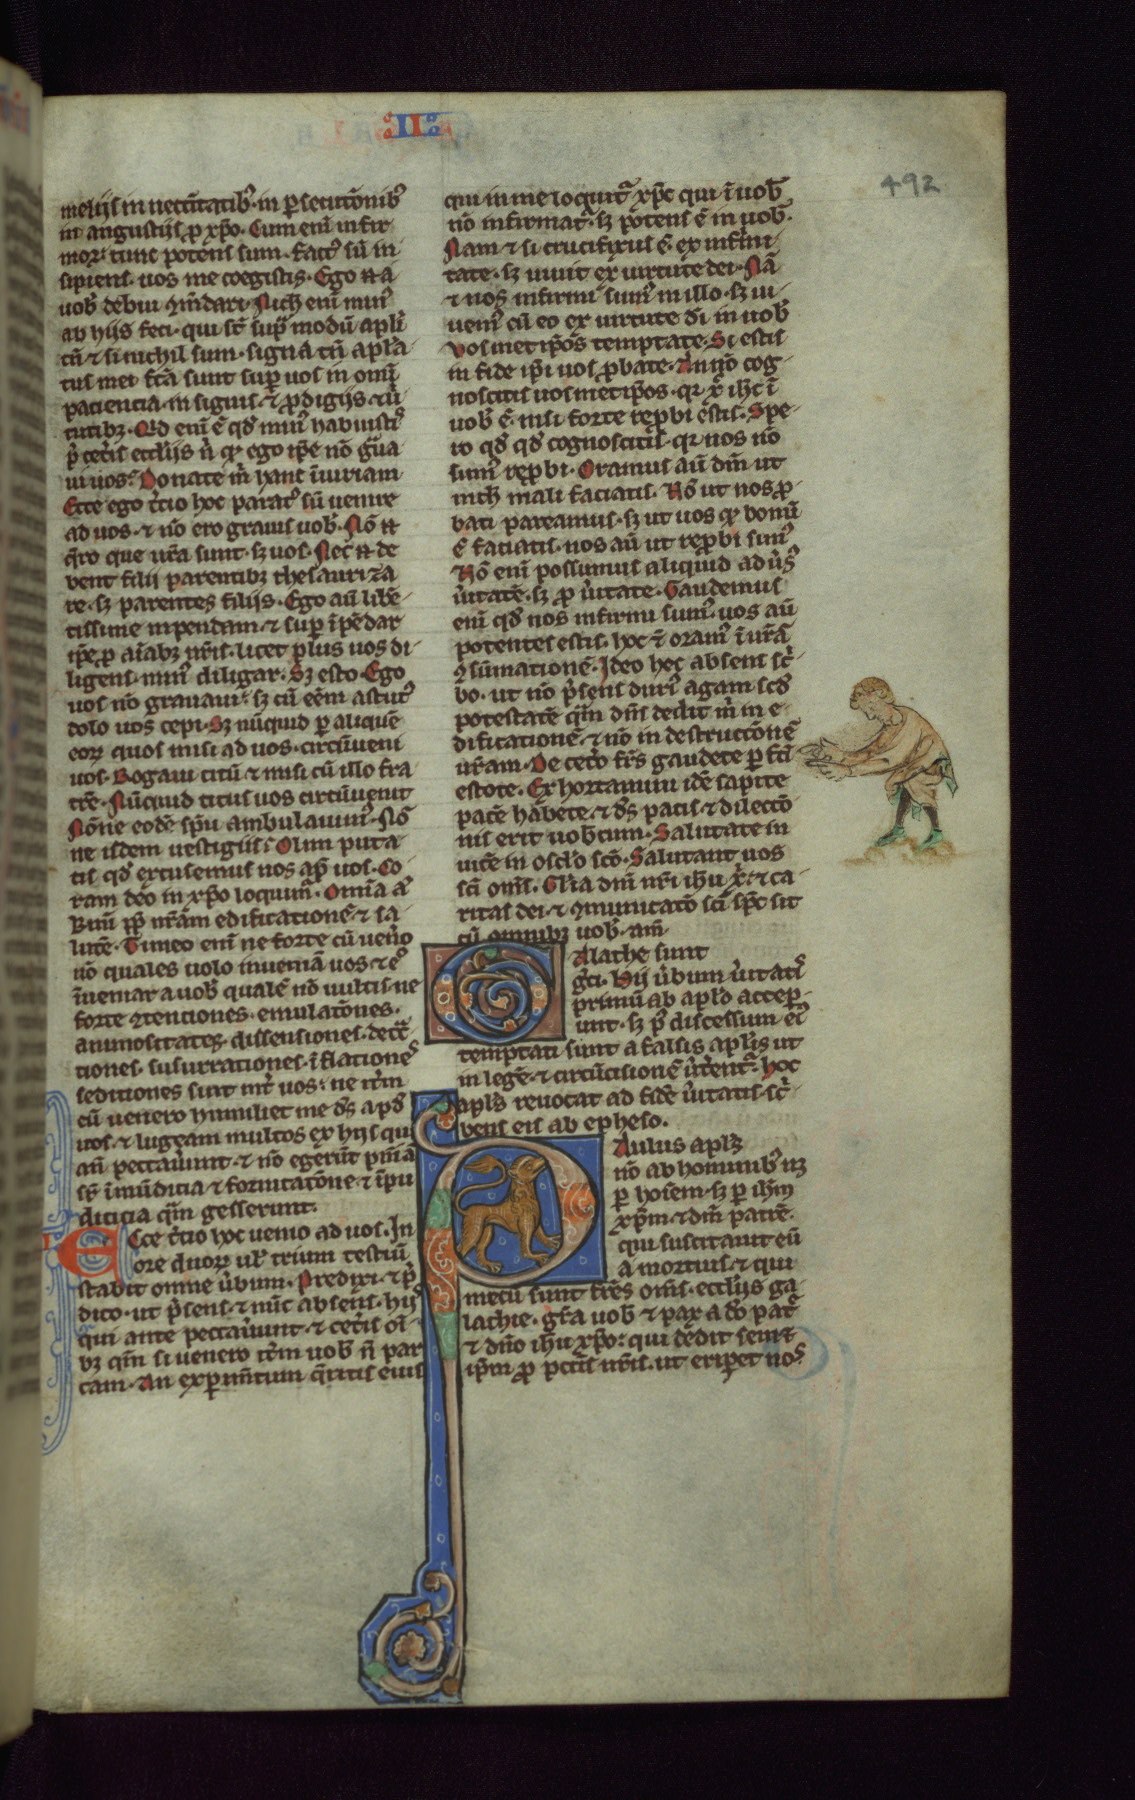 II
492
meis in necc̄itatib᷒ in ꝑsecut̄onib᷒
in angustijs ꝓ xp̄o. Cum eni᷒ infir
mor tunc potens sum. fact᷒ sū in
sipiens. uos me coegistis. Ego
uob̄ debui ꝯm̄dari. Nich eni᷒ min᷒
ab hijs feci. qui st̄ sup̄ modū apl̄i
tū ⁊ si nichil sum. signa tn̄ apl̄a
tus mei fc̄a sunt suꝑ uos in omī
paciencia. in signis ⁊ ꝓdigijs ⁊ ůi
tutibꝫ. Qd̄ eni᷒ ē qd̄ min᷒ habuist᷒
p̄ cet̄is ecc̄lijs n̄ qꝫ ego ip̄e nō g̃ua
ui uos. Donate m̄ hanc īiuriam
Ecce ego t̄cio hoc parat᷒ sū uenire
ad uos. ⁊ nō ero grauis uob̄. Nō
q̄ro que ur̄a sunt. sꝫ uos. Nec de
bent filij parentibꝫ thesauriza
re. sꝫ parentes filijs. Ego aū libē
tissime inpendam. ⁊ suꝑ īpēdar
ip̄e ꝓ aīabꝫ ur̄is. licet plus uos di
ligens min᷒ diligar. Sꝫ esto. Ego
uos nō grauaui. sꝫ cū eēm astut᷒
dolo uos cepi. Sꝫ nūquid ꝑ aliquē
eoꝝ quos misi ad uos. circūueni
uos. Rogaui titū ⁊ misi cū illo fra
trē. Nūquid titus uos circūuenit
Nōne eodē sp̄u ambulauim᷒. Nō
ne isdem uestigijs. Olim puta
tis qd̄ excusemus nos ap̄ uos. Co
ram deo in xp̄o loquim̄. Omīa
ꝓp̄ ur̄am edificationē ⁊ sa
lutē. Timeo eni᷒ ne forte cū uen̄o
nō quales uolo inueniā uos ⁊ e᷒
īueniar a uob̄ qualē nō uultis. ne
forte ꝯtenciones. emulat̄ones.
animositates. dissensiones. det̄c
tiones. susurrationes. īflatione᷒
seditiones sint int̄ uos. ne it̄m
cū uenero humiliet me ds̄ apd̄
uos. ⁊ lugeam multos ex hijs qui
an̄ peccaůunt. ⁊ nō egerūt pn̄iā
sr̄ īmūdicia ⁊ fornicat̄one ⁊ īpu
dicicia qm̄ gesserunt.
Ecce t̄cio hoc uenio ad uos. In
ore duoꝝ ul̄ trium testiū
stabit omne ůbum. Predixi. ⁊ p̄
dico. ut p̄sens. ⁊ nūc absens. hij᷒
qui ante peccaůunt. ⁊ cet̄is oī
bꝫ qm̄ si uenero it̄m uob̄ n̄ par
cam. An exꝑim̄tum q̄ritis eius
qui in me loquit̄ xp̄c qui ī uob̄
nō infirmat̄. sꝫ potens ē in uob̄.
Nam ⁊ si crucifixus ē. ex infirmi
tate. sꝫ uiuit ex uirtute dei. Nā
⁊ nos infirmi sum᷒ in illo. sꝫ ui
uem᷒ cū eo ex uirtute di᷒ in uob̄
Vosmet ip̄os temptate. Si estis
in fide ip̄i uos ꝓbate. An nō cog
noscitis uosmetip̄os. qꝛ xp̄c ih̄c ī
uob̄ ē. nisi forte repꝓbi estis. Spe
ro qd̄ qd̄ cognoscitis. qꝛ nos nō
sum᷒ reꝓbi. Oramus aū dm̄ ut
nich mali faciatis. Nō ut nos ꝓ
bati pareamus. sꝫ ut uos qꝫ bonū
ē faciatis. nos aū ut reꝓbi sim᷒
Nō eni᷒ possumus aliquid adůs᷒
ůitatē. sꝫ ꝓ ůitate. Gaudemus
eni᷒ qd̄ nos infirmi sum᷒. uos aū
potentes estis. hoc ⁊ oram᷒ ur̄ā
ꝯsūmationē. Ideo hec absens sc̄i
bo. ut nō p̄sens duri᷒ agam scd̄
potestatē qm̄ dn̄s dedit m̄ in e
dificationē. ⁊ nō in destructōnē
ur̄am. De cet̄o fr̄s gaudete ꝑfc̄i
estote. Exhortamini idē sapite
pacē habete. ⁊ ds̄ pacis ⁊ dilectō
nis erit uobcum. Salutate in
uicē in osclo sc̄o. Salutant uos
sc̄i oms̄. Gr̄ia dni᷒ nr̄i ih̄u xp̄i ⁊ ca
ritas dei. ⁊ ꝯmunicatō sc̄i sp̄c sit
cū omnibꝫ uob̄. am̄
Galathe sunt
g̃ci. Hij ůbum ůitati᷒
primū ab apl̄o acceꝑ
unt. sꝫ p᷒ discessum ei᷒
temptati sunt a falsis apl̄is ut
in legē. ⁊ circūcisionē ůt̄ent̄. hoc
apl̄s reuocat ad fidē ůitatis. sc̄i
bens eis ab epheso.
Paulus apl̄s
nō ab hominib᷒ neqꝫ
ꝑ hoīem. sꝫ ꝑ ih̄m
xp̄m. ⁊ dm̄ patrē.
qui suscitauit eū
a mortuis. ⁊ qui
mecū sunt fr̄es oms̄. ecclijs ga
lathie. gr̄a uob̄ ⁊ pax a do᷒ patr̄
⁊ dn̄o ih̄u xp̄o. qui dedit semet
ip̄m ꝓ pctīs nr̄is. ut eriꝑet nos᷒